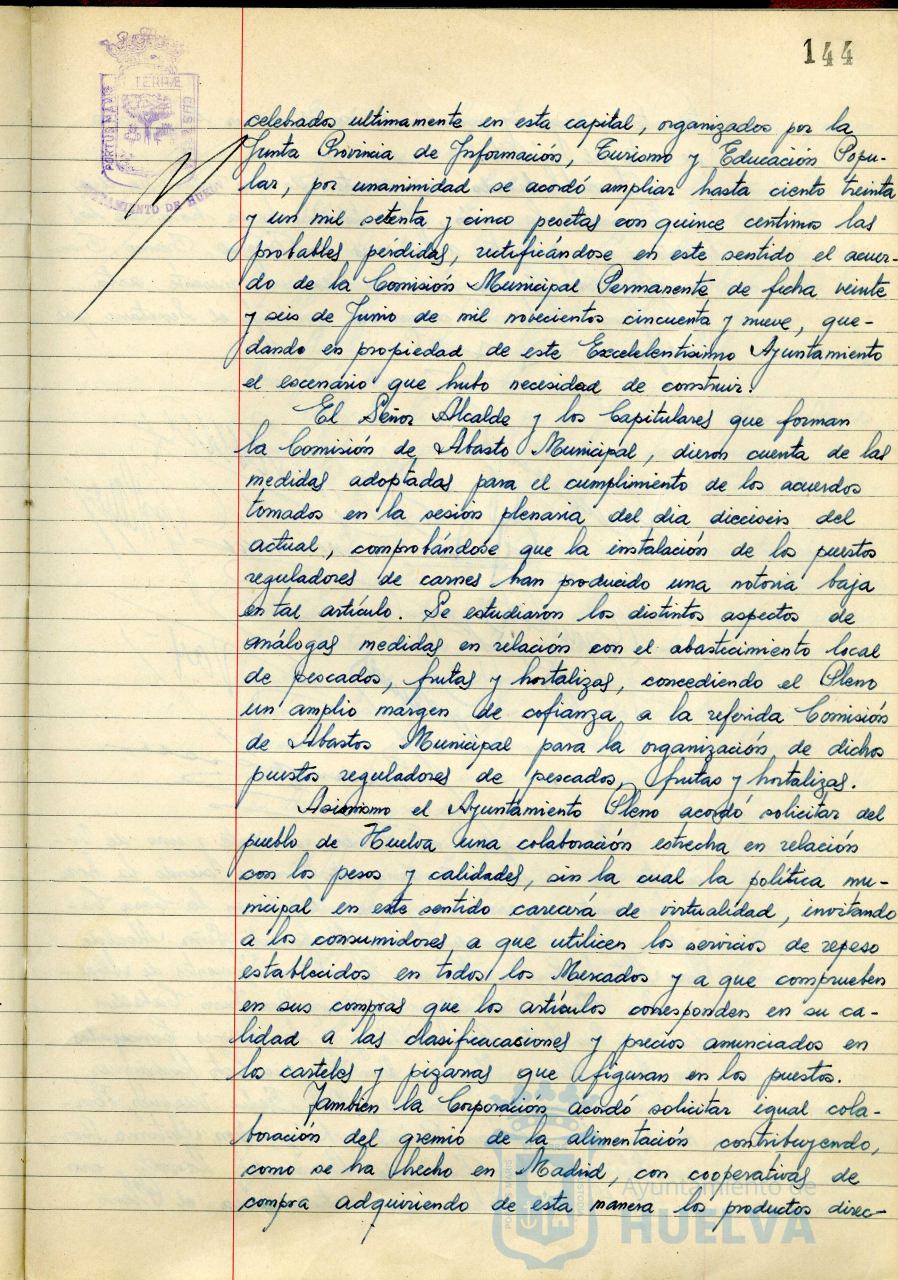 144
TERRÆ
PORTUS MARIS
CUSTODIA
AYUNTAMIENTO DE HUELVA
celebrados ultimamente en esta capital, organizados por la
Junta Provincia de Información, Turismo y Educación Popu-
lar, por unanimidad se acordó ampliar hasta ciento treinta
y un mil setenta y cinco pesetas con quince centimos las
probables pérdidas, rectificándose en este sentido el acuer-
do de la Comisión Municipal Permanente de fecha veinte
y seis de Junio de mil novecientos cincuenta y nueve, que-
dando en propiedad de este Excelelentisimo Ayuntamiento
el escenario que hubo necesidad de construir.
El Señor Alcalde y los Capitulares que forman
la Comisión de Abasto Municipal, dieron cuenta de las
medidas adoptadas para el cumplimiento de los acuerdos
tomados en la sesión plenaria del dia dieciseis del
actual, comprobándose que la instalación de los puestos
reguladores de carnes han producido una notoria baja
en tal artículo. Se estudiaron los distintos aspectos de
análogas medidas en relación con el abastecimiento local
de pescados, frutas y hortalizas, concediendo el Pleno
un amplio margen de cofianza a la referida Comisión
de Abastos Municipal para la organización de dichos
puestos reguladores de pescados, frutas y hortalizas.
Asimismo el Ayuntamiento Pleno acordó solicitar del
pueblo de Huelva una colaboración estrecha en relación
con los pesos y calidades, sin la cual la política mu-
nicipal en este sentido carecerá de virtualidad, invitando
a los consumidores a que utilicen los servicios de repeso
establecidos en todos los Mercados y a que comprueben
en sus compras que los artículos corresponden en su ca-
lidad a las clasificacaciones y precios anunciados en
los carteles y pizarras que figuran en los puestos.
Tambien la Corporación acordó solicitar igual cola-
boración del gremio de la alimentación contribuyendo,
como se ha hecho en Madrid, con cooperativas de
compra adquiriendo de esta manera los productos direc-
Ayuntamiento de
HUELVA